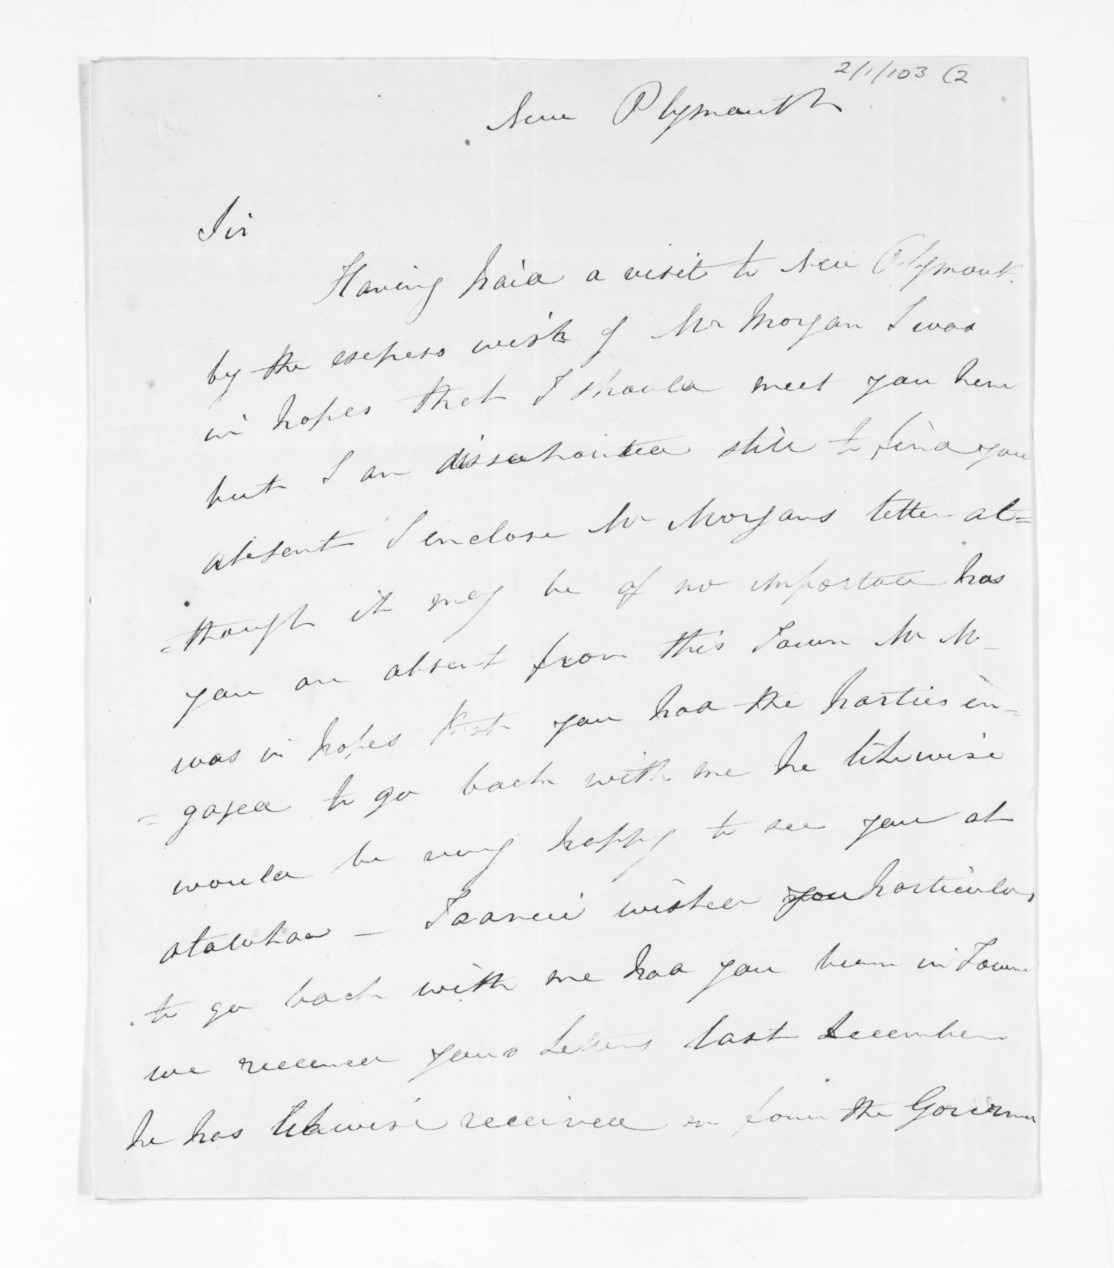 2/1/103 (2
New Plymouth
Sir
Having paid a visit to New Plymout
by the express wish of Mr Morgan I was
in hopes that I should meet you here
but I am dissapointed still to find you
absent I enclose Mr Morgans letter al=
=though it may be of no importace has
you are absent from this Town Mr M-
was in hopes that you had the parties en=
=gaged to go back with me he likewise
would be very happy to see you at
otawhao - wished you particular
to go back with me had you been in Town
we received yours Letters last December
he has likewise received on from the Governor